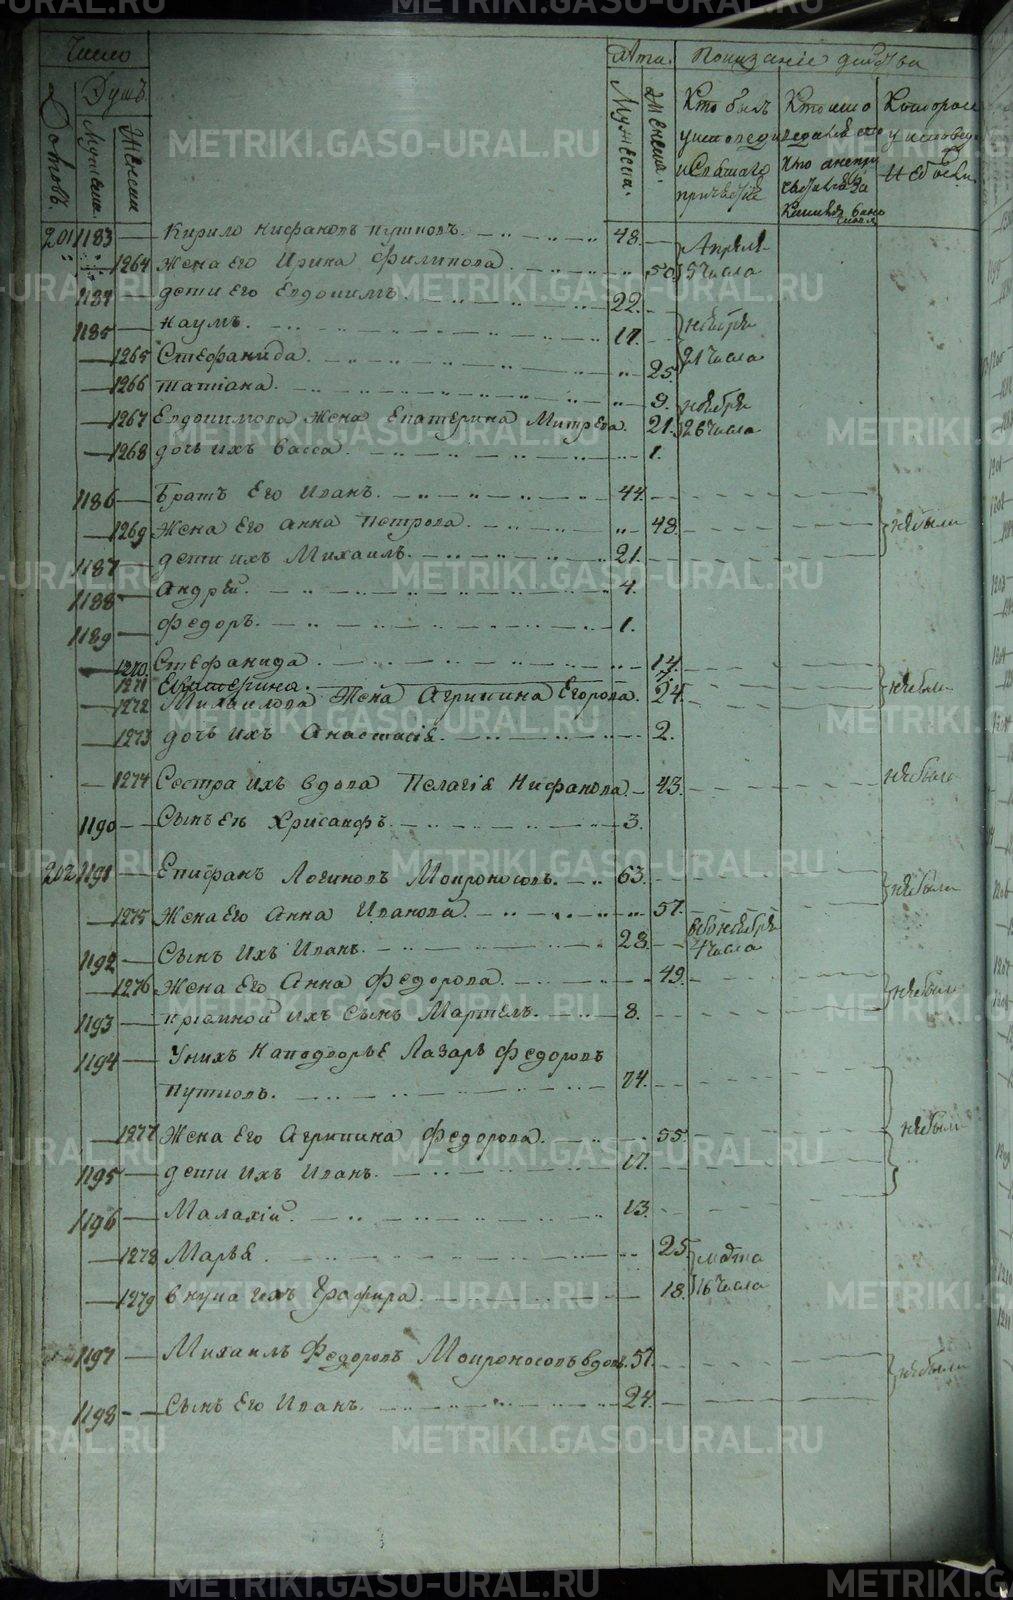 Число
Лѣта.
Показаніе действа
Дворовъ.
Душъ
Мужеска.
Женска
Мужеска.
Женска.
Кто былъ
у исповеди
и святаго
причастіе
201 1183 — Кирило Нифановъ Путиловъ. 48.
Апреля
5 числа
1264 жена его Ирина Филипова 50
1184 дети его Евдокимъ 22.
1185 Наумъ. 17.
ноября
21 числа
1265 Стефанида. 25.
1266 Татіана. 9.
1267 Евдокимова жена Екатерина Митрева. 21.
ноября
26 числа
1268 дочь ихъ Васса. 1.
1186 Братъ его Иванъ. 44.
1269 жена его Анна Петрова. 48.
небыли
1187 дети ихъ Михаилъ. 21.
1188 Андрей. 4.
1189 Федоръ. 1.
1270. Стефанида 14.
1271 Екатерина. 7.
1272 Михаилова жена Агрипина Егорова. 24.
небыли
1273 дочь ихъ Анастасія. 2.
1274 Сестра ихъ вдова Пелагія Нифанова. 43.
небыла
1190 Сынъ ея Хрисанфъ. 3.
202 1191 Епифанъ Логиновъ Мокроносовъ. 63.
небыли
1275 жена его Анна Иванова. 57.
1192 Сынъ ихъ Иванъ. 28.
ноября
4 числа
1276 жена его Анна Федорова. 49.
небыли
1193 приемной ихъ сынъ Мартелъ. 8.
1194 У нихъ на подворье Лазарь Федоровъ
Путиловъ. 74.
1277 жена его Агрипина Федорова. 55.
небыли
1195 дети ихъ Иванъ. 17.
1196 Малахій. 13.
1278 Марья 25.
марта
16 числа
1279 внука ихъ Ерафира 18.
1197 Михаилъ Федоровъ Мокроносовъ вдовъ. 57.
небыли
1198 Сынъ его Иванъ. 24.
METRIKI.GASO-URAL.RU